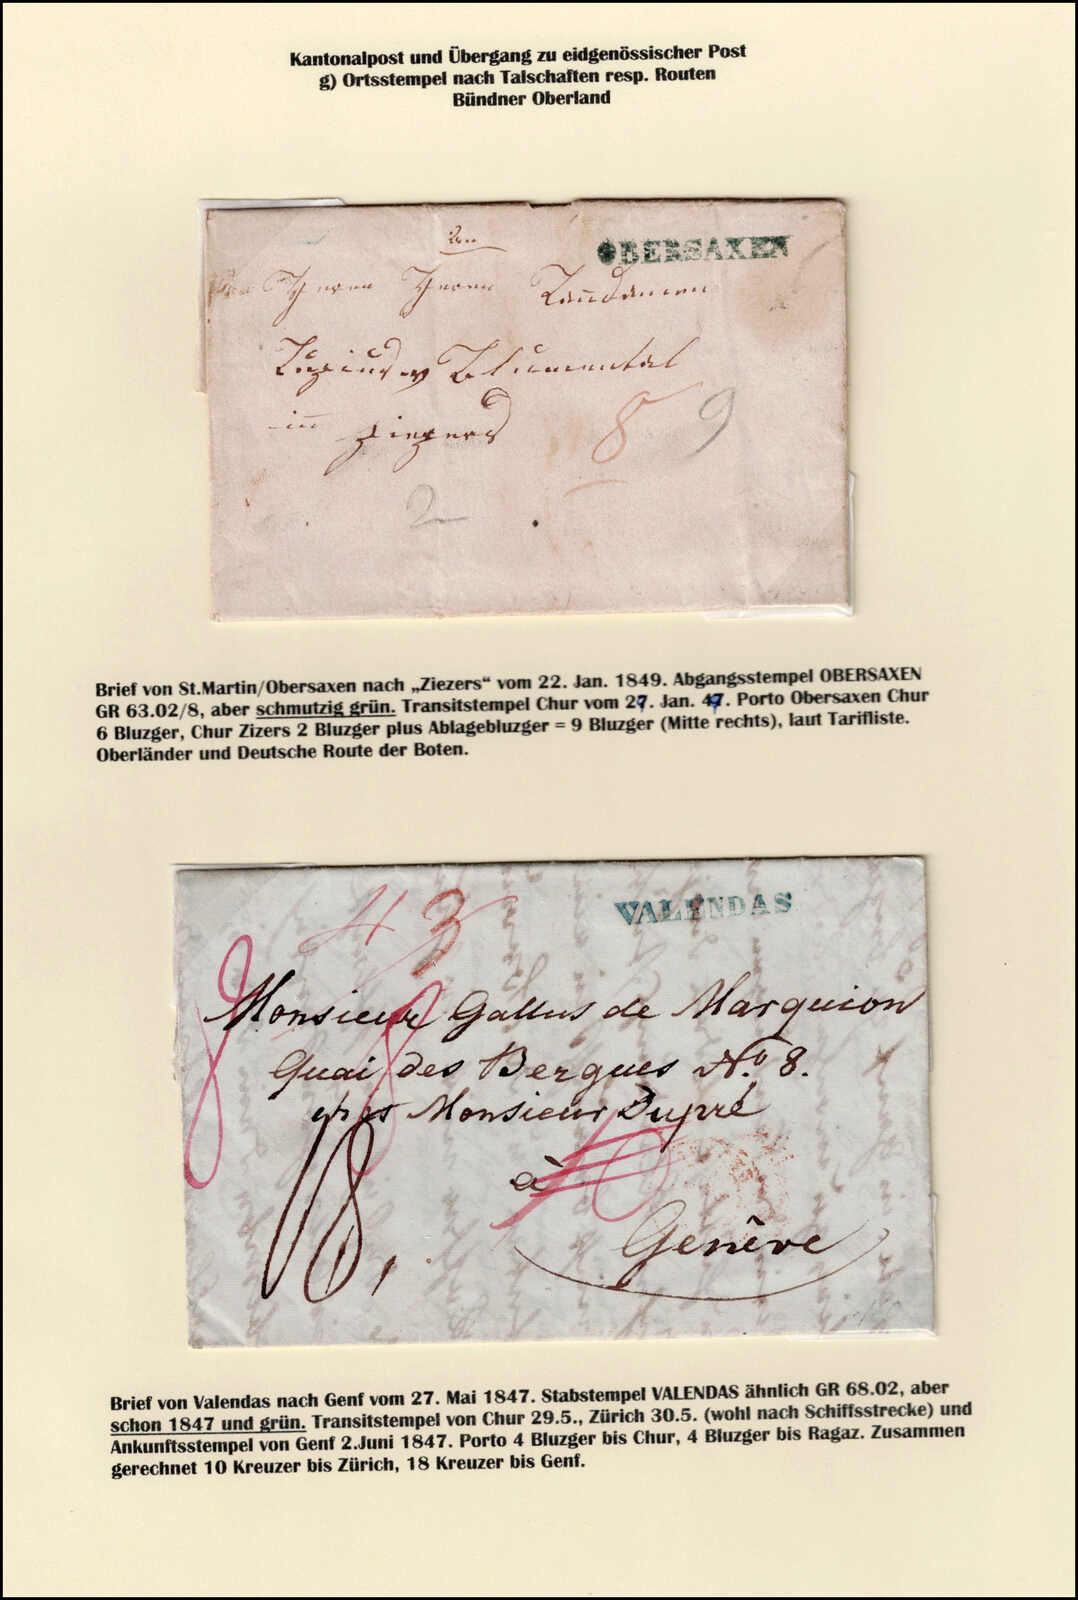 Kantonalpost und Übergang zu eidgenössischer Post
g) Ortsstempel nach Talschaften resp. Routen
Bündner Oberland
OBERSAXEN
Herrn Herrn Landamen
Luzius v Blumental
in Ziezers
8 9
2
Brief von St.Martin/Obersaxen nach „Ziezers“ vom 22. Jan. 1849. Abgangsstempel OBERSAXEN
GR 63.02/8, aber schmutzig grün. Transitstempel Chur vom 27. Jan. 47. Porto Obersaxen Chur
6 Bluzger, Chur Zizers 2 Bluzger plus Ablagebluzger = 9 Bluzger (Mitte rechts), laut Tarifliste.
Oberländer und Deutsche Route der Boten.
4 3
VALENDAS
Monsieur Gallus de Marquion
Quai des Bergues No 8.
chès Monsieur Dupré
à
Genêve
18
Brief von Valendas nach Genf vom 27. Mai 1847. Stabstempel VALENDAS ähnlich GR 68.02, aber
schon 1847 und grün. Transitstempel von Chur 29.5., Zürich 30.5. (wohl nach Schiffsstrecke) und
Ankunftsstempel von Genf 2.Juni 1847. Porto 4 Bluzger bis Chur, 4 Bluzger bis Ragaz. Zusammen
gerechnet 10 Kreuzer bis Zürich, 18 Kreuzer bis Genf.